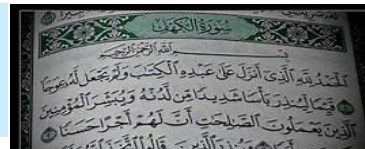 سُورَةُ الْكَهْفِ
بِسْمِ اللَّهِ الرَّحْمَٰنِ الرَّحِيمِ
الْحَمْدُ لِلَّهِ الَّذِي أَنزَلَ عَلَىٰ عَبْدِهِ الْكِتَابَ وَلَمْ يَجْعَل لَّهُ عِوَجًا
قَيِّمًا لِّيُنذِرَ بَأْسًا شَدِيدًا مِّن لَّدُنْهُ وَيُبَشِّرَ الْمُؤْمِنِينَ
الَّذِينَ يَعْمَلُونَ الصَّالِحَاتِ أَنَّ لَهُمْ أَجْرًا حَسَنًا
وَيُنذِرَ الَّذِينَ قَالُوا اتَّخَذَ